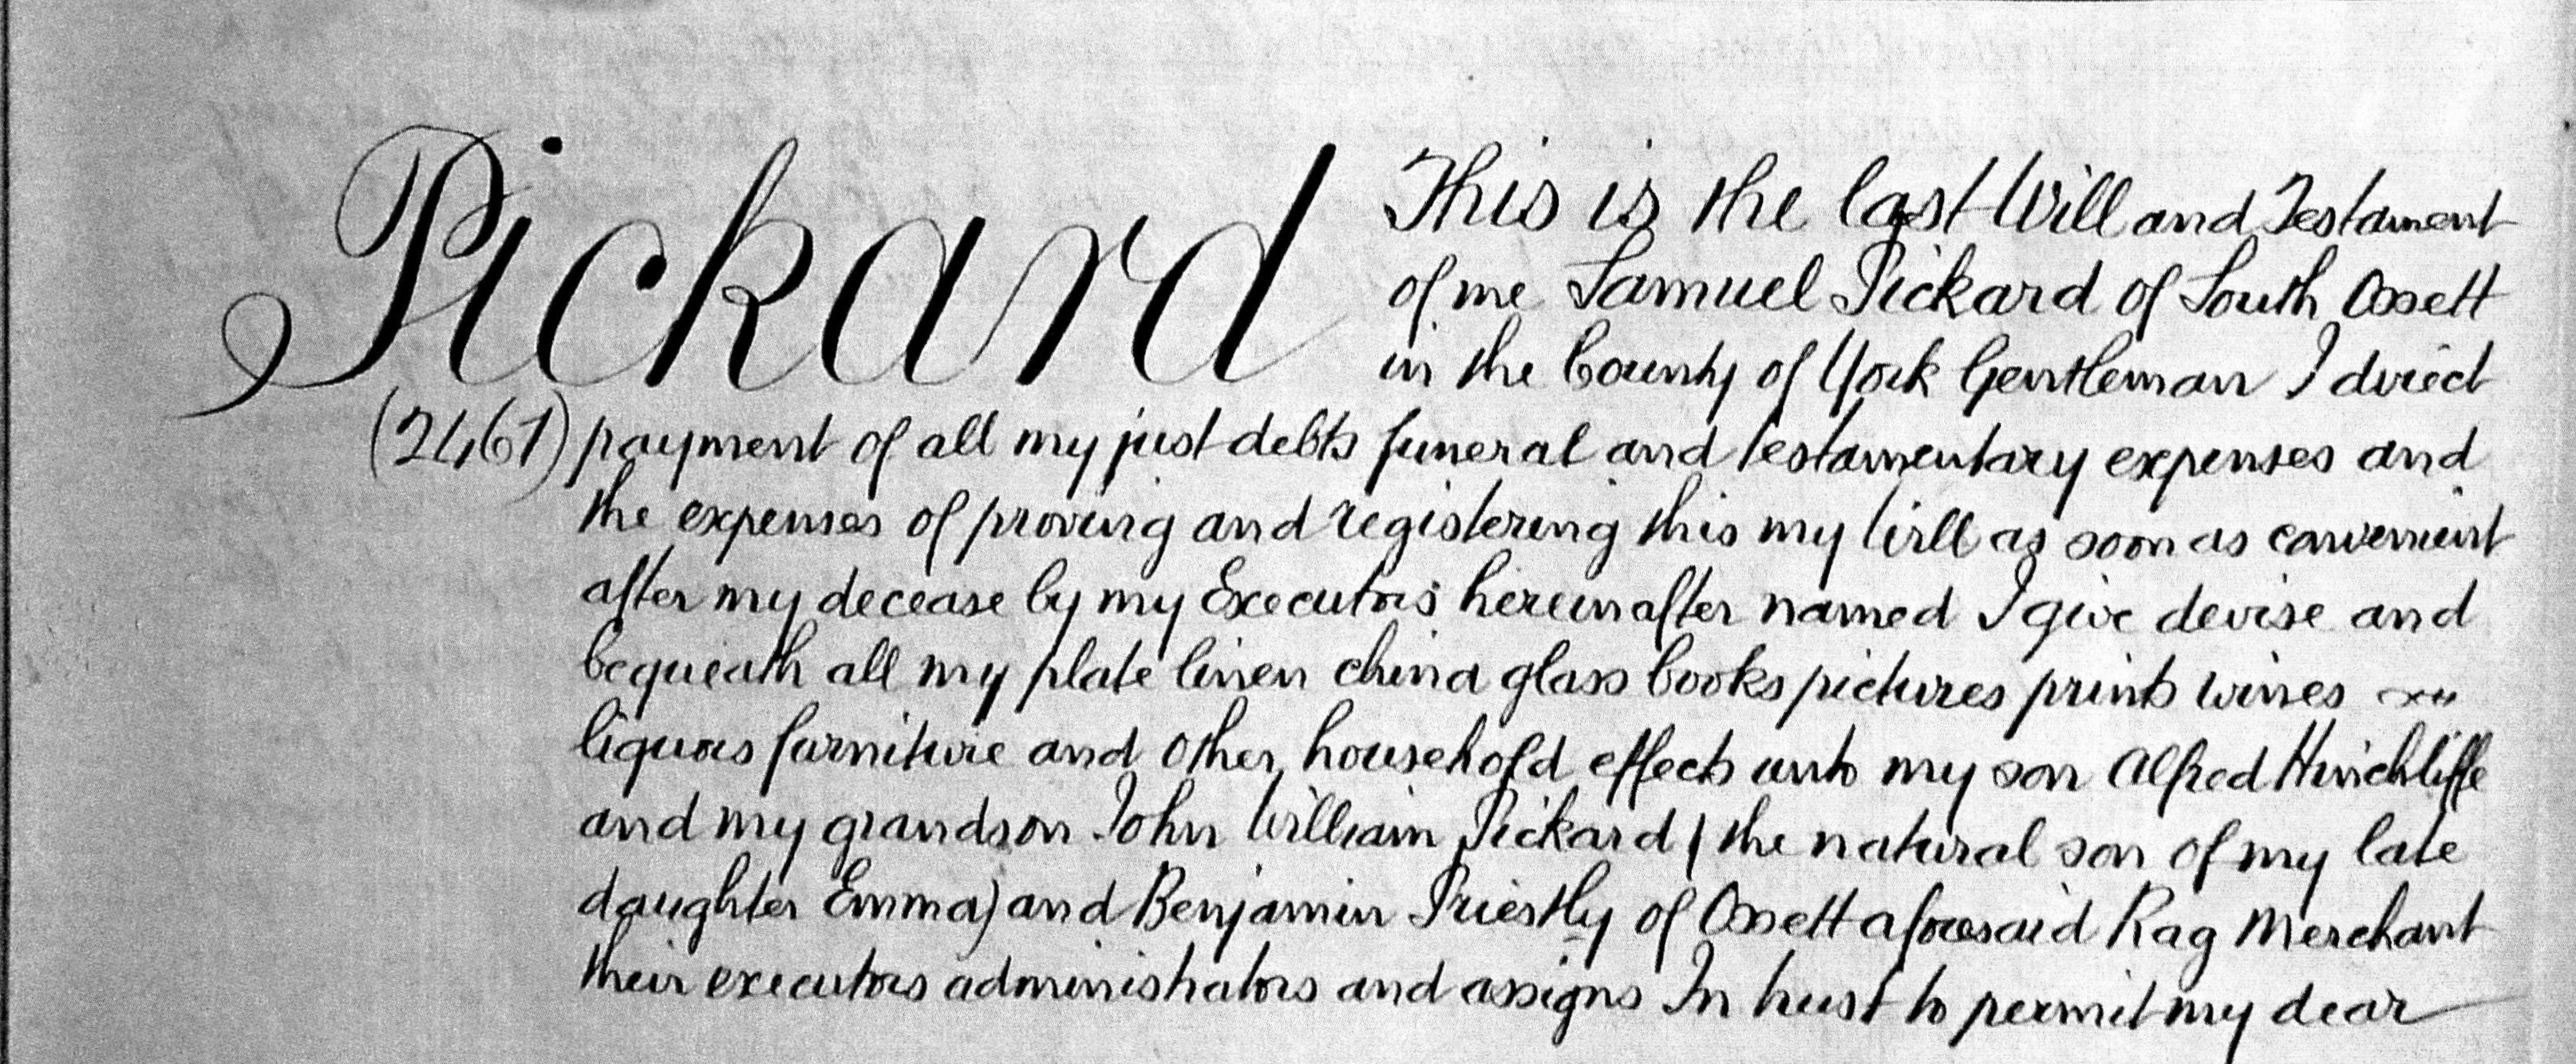 Pickard
This is the last Will and Testament
of me Samuel Pickard of South Ossett
in the County of York Gentleman I direct
(2461) payment of all my just debts funeral and testamentary expenses and
the expenses of proving and registering this my Will as soon as convenient
after my decease by my Executors hereinafter named I give devise and
bequeath all my plate linen china glass books pictures prints wines
liquors furniture and other household effects unto my son Alfred Hinchliffe
and my grandson John William Pickard (the natural son of my late
daughter Emma) and Benjamin Priestly of Ossett aforesaid Rag Merchant
their executors administrators and assigns In trust to permit my dear